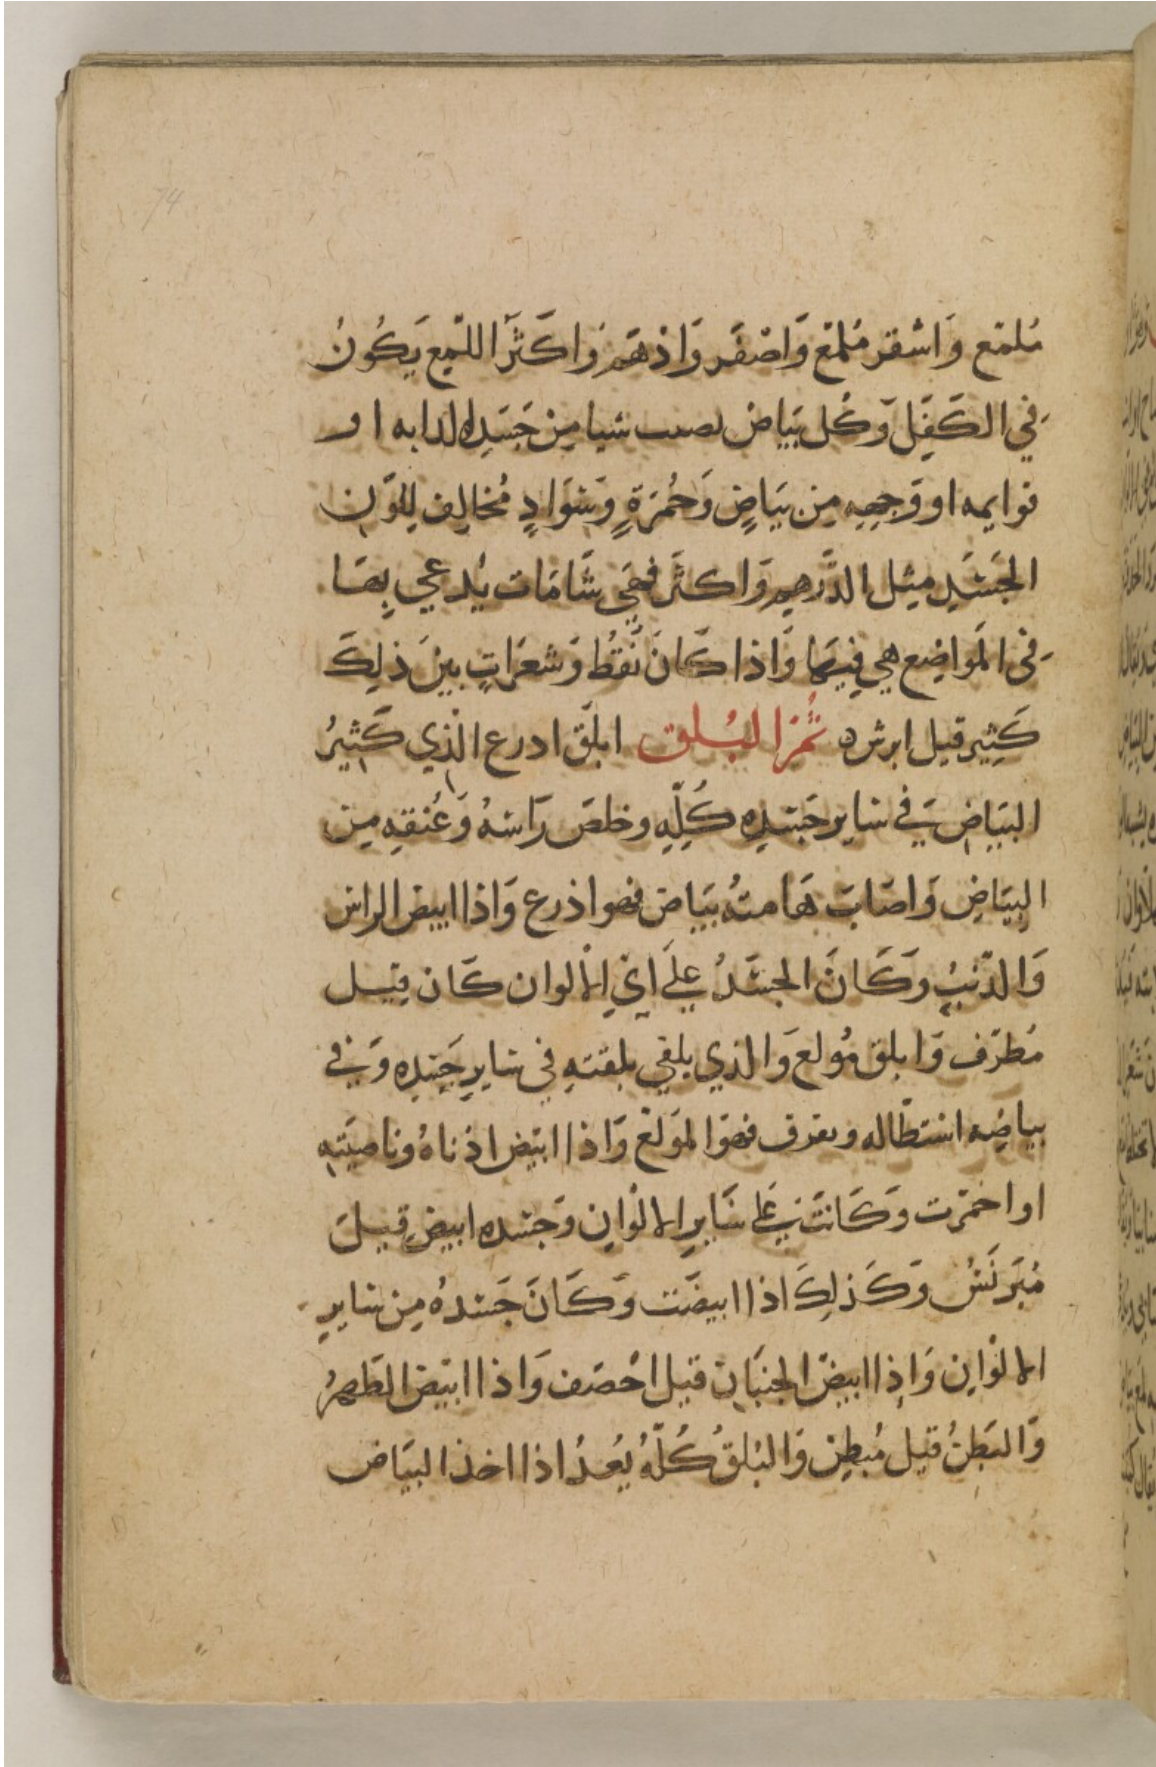 مُلمّع وَاشقر مُلمّع وَاصْفَر وَاذهَم وَاكَثَرَ اللمّع يَكُونُ
في الكَفَلِ وَكُل بَيَاض يصيب شيا مِن جَسَدِ الدابه او
قوايمه او وَجهِهِ مِن بَيَاضٍ وَحُمْرَةٍ وَسَوَادٍ مُخالِف لِلوّن
الجَسَدِ مِثل الدَّرهِم وَاكثَر فهَي شَّامَات يُدعي بِهَا
في المَوَاضِع هي فِيهَا وَاذا كَانَ نُقَطُ وَشعَرَاتٍ بين ذلِكَ
كَثِير قيل ابرش ه ثُمَّ البُلق ابلَق ادرع الذِي كَثِيرُ
البَيَاضِ في سَايِر جَسَدِه كُلِهِ وخلصَ رَاسَهُ وَعُنقِهِ مِن
البيَاضِ وَاصَابَ هَامتهُ بَيَاض فهو اذرع وَاذا ابيض الراس
وَالذّنبُ وَكَانَ الجسَدُ عليَ ايّ الالوان كَان قِيل
مُطرّف وَابلق مُولع وَالذي بلقي بلقتهِ في سَايرِ جَسَدِه وَفي
بياضِه استطَاله وتفرق فهوَ المَولع وَاذا ابيَض اذناهُ وناصيَته
او احمَرّت وَكَانَتْ عَلي سَايرِ الالوَانِ وَجسَده ابيض قِيلَ
مُبَرنَسُ وَكَذلِكَ اذا ابيضَت وَكَانَ جَسَدهُ مِن سَايرِ
الالوَانِ وَاذِا ابيضّ الجنبَانِ قيل اخصَف وَاذا ابيَض الظهرُ
وَالبَطِنُ قيل مُبطِن وَالبُلقُ كُلّهُ يُعدُ اذا اخذ البيَاض